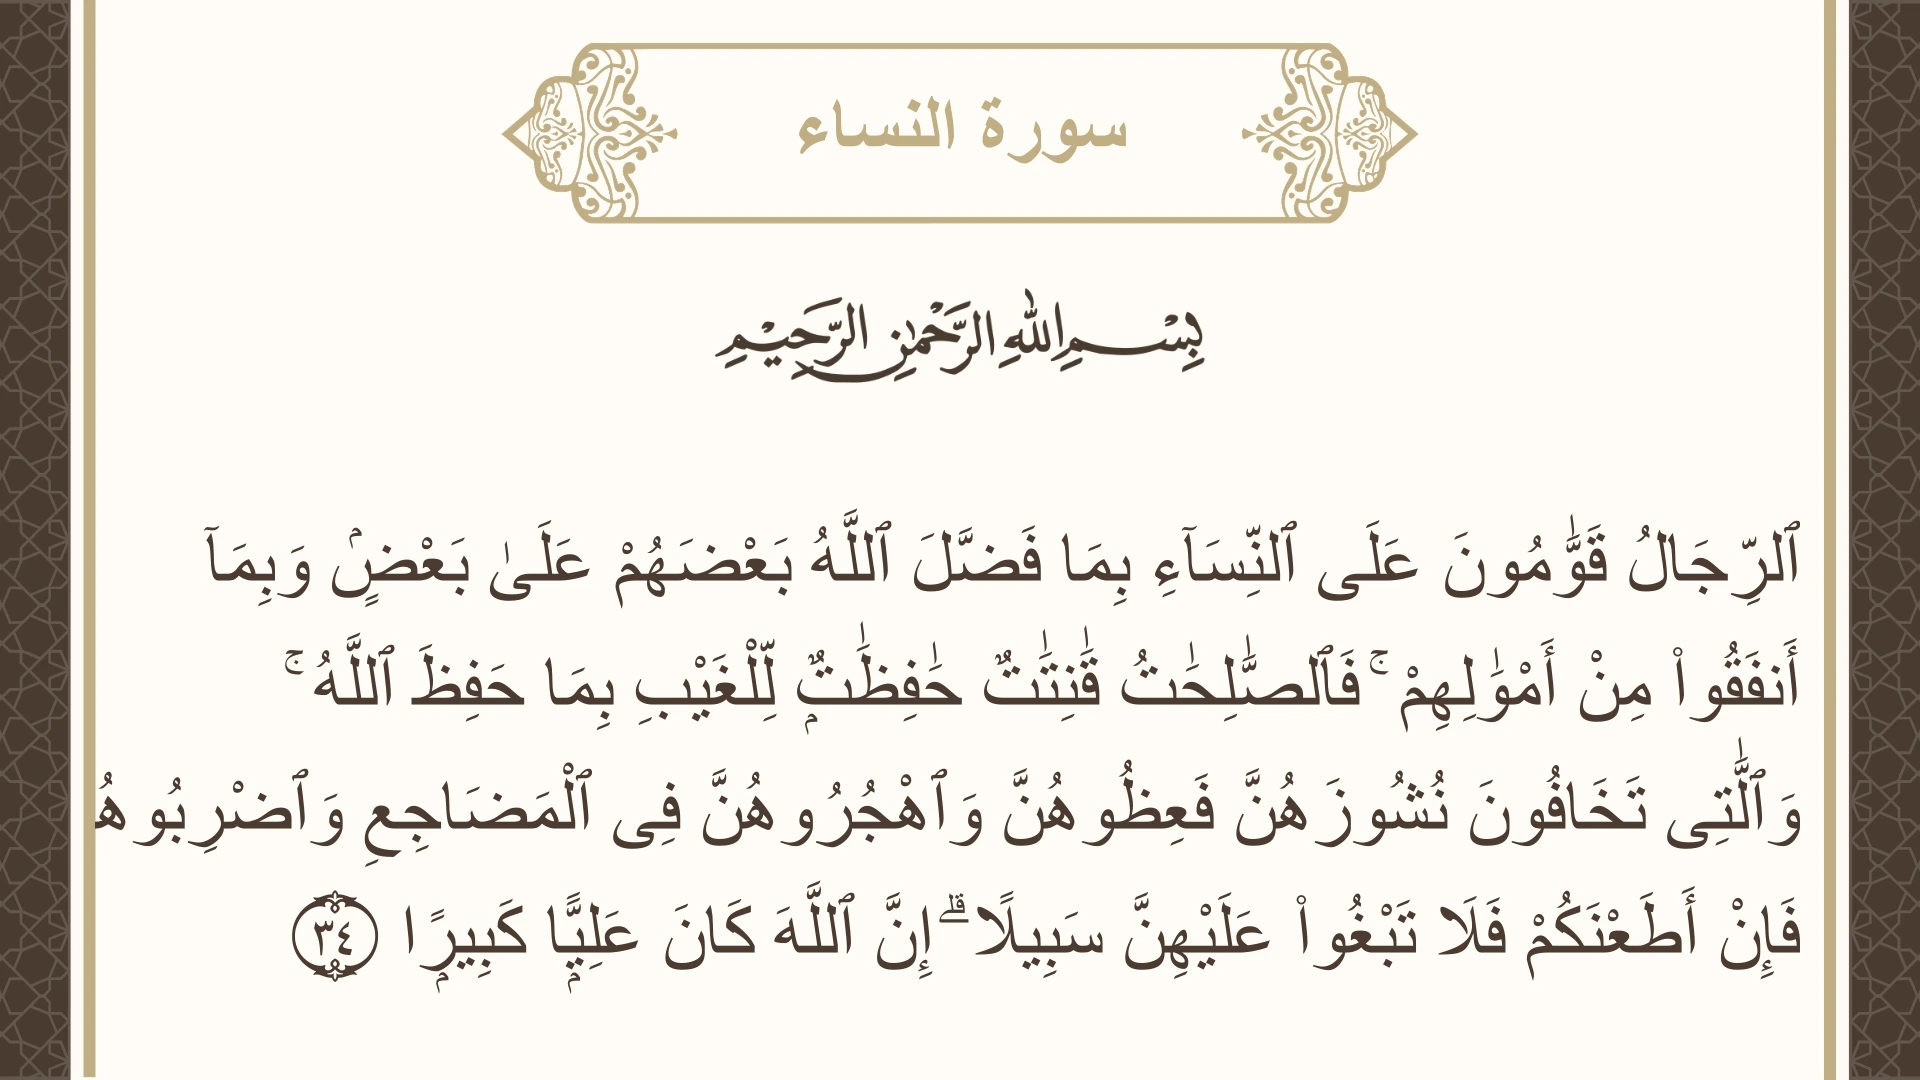 سورة النساء
بِسْمِ اللهِ الرَّحْمٰنِ الرَّحِيْمِ
ٱلرِّجَالُ قَوَّٰمُونَ عَلَى ٱلنِّسَآءِ بِمَا فَضَّلَ ٱللَّهُ بَعْضَهُمْ عَلَىٰ بَعْضٍۢ وَبِمَآ
أَنفَقُوا۟ مِنْ أَمْوَٰلِهِمْ ۚ فَٱلصَّٰلِحَٰتُ قَٰنِتَٰتٌ حَٰفِظَٰتٌۭ لِّلْغَيْبِ بِمَا حَفِظَ ٱللَّهُ ۚ
وَٱلَّٰتِى تَخَافُونَ نُشُوزَهُنَّ فَعِظُوهُنَّ وَٱهْجُرُوهُنَّ فِى ٱلْمَضَاجِعِ وَٱضْرِبُوهُ
فَإِنْ أَطَعْنَكُمْ فَلَا تَبْغُوا۟ عَلَيْهِنَّ سَبِيلًا ۗ إِنَّ ٱللَّهَ كَانَ عَلِيًّۭا كَبِيرًۭا ٣٤